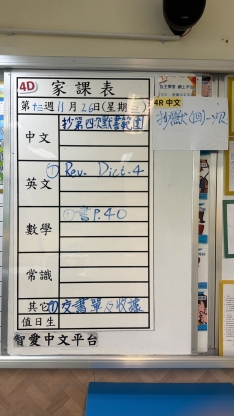 4D 家課表
第十三週11月26日(星期三)
中文 抄第四次默書範圍
英文 ① Rev. Dict. 4
數學 ①書P.40
常識
其它 ①交書單及收據
值日生
智愛中文平台
4R 中文